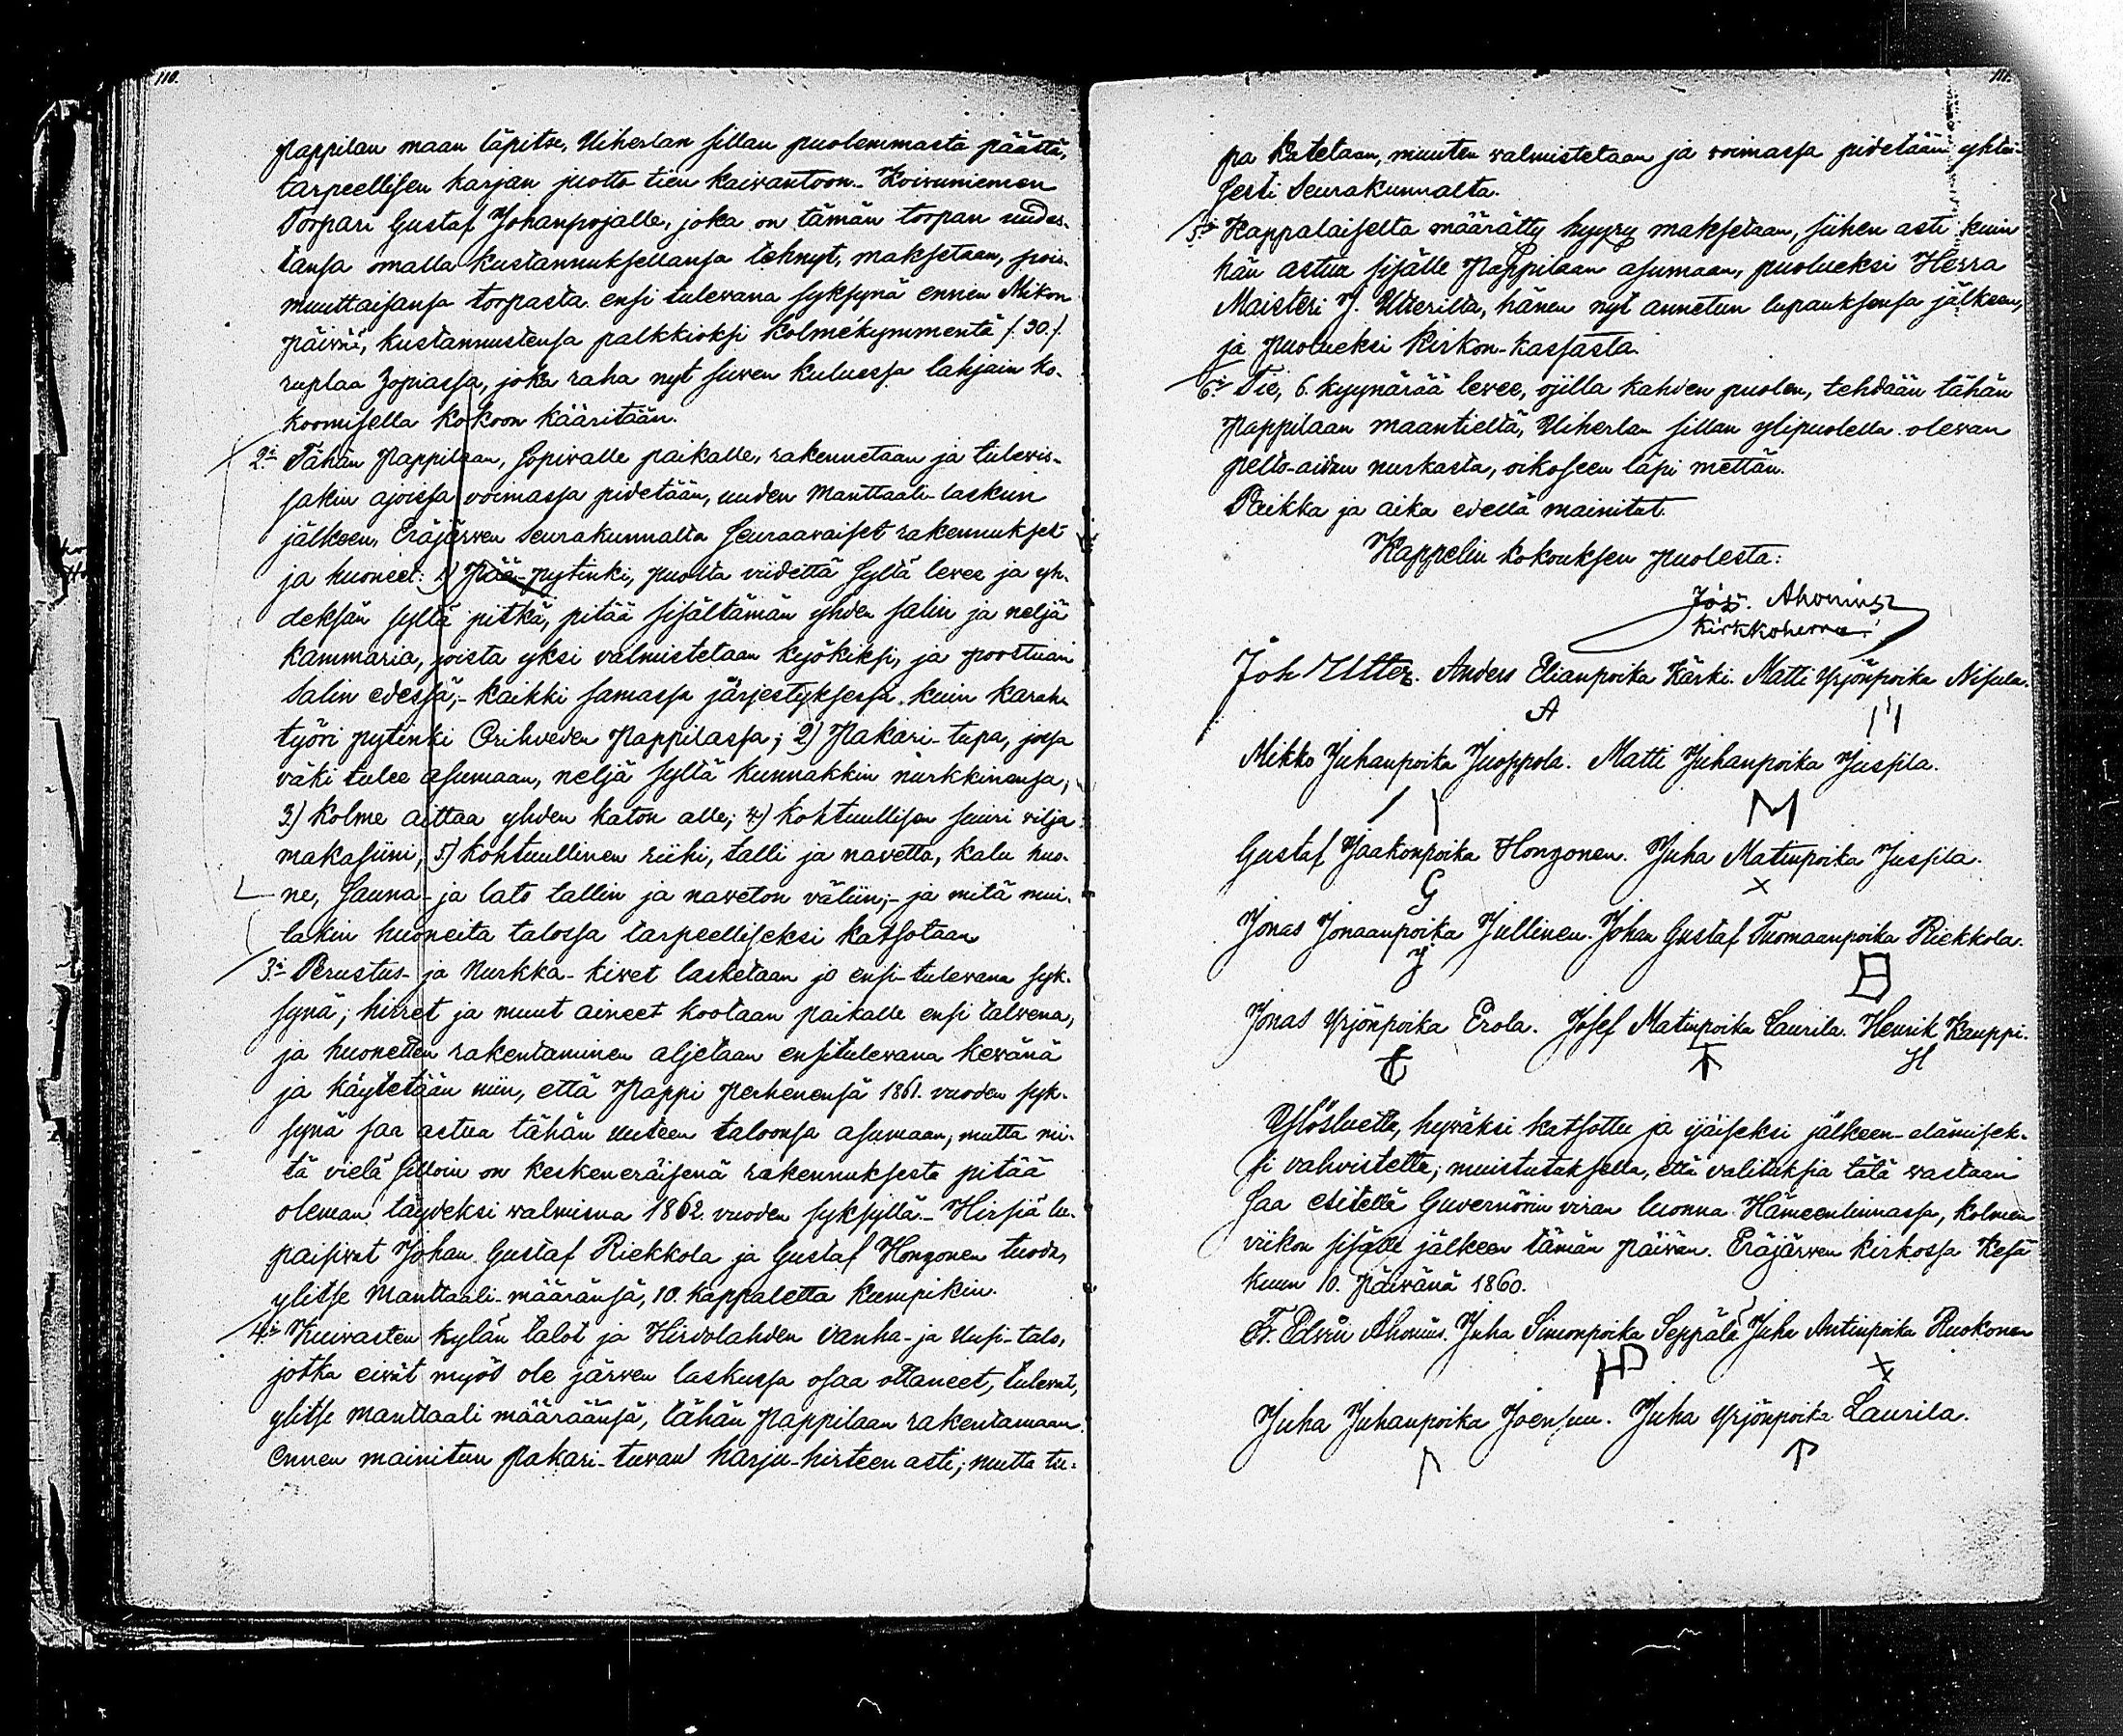 110.
pappilan maan läpitse, Uiherlan sillan puolemmasta päästä,
tarpeellisen karjan juotto tien kaivantoon. Koivuniemen
Torpari Gustaf Johanpojalle, joka on tämän torpan uudes-
tansa omalla kustannuksellansa tehnyt, maksetaan, pois
muuttaisansa torpasta ensi tulevana syksynä ennen Mikon
päivää, kustannustensa palkkioksi kolmekymmentä /: 30 :/
ruplaa hopiassa, joka raha nyt suven kuluessa lahjain ko-
koomisella kokoon kääritään.
2:si Tähän Pappilaan, sopivalle paikalle, rakennetaan ja tulevis-
sakin ajoissa voimassa pidetään, uuden Manttaali-laskun
jälkeen, Eräjärven seurakunnalta seuraavaiset rakennukset
ja huoneet: 1) Pää-pytinki, puolta viidettä syltä levee ja yh-
deksän syltä pitkä, pitää sisältämän yhden salin ja neljä
kammaria, joista yksi valmistetaan kyökiksi, ja poostuan
salin edessä;- kaikki samassa järjestyksessä kuin karah-
työri pytinki Oriheden Pappilassa; 2) Pakari-tupa, jossa
väki tulee asumaan, neljä syltä kunnakkin nurkkinensa,
3.) kolme aittaa yhden katon alle; 4) kohtuullisen suuri vilja
makasiini, 5) kohtuullinen riihi, talli ja navetta, kalu huo-
ne, sauna- ja lato tallin ja naveton väliin;- ja mitä mui-
takin huoneita talossa tarpeelliseksi katsotaan
3:si Perustus- ja Nurkka-kivet lasketaan jo ensi-tulevana syk-
synä; hirret ja muut aineet kootaan paikalle ensi talvena,
ja huonetten rakentaminen aljetaan ensitulevana kevänä
ja käytetään niin, että Pappi perhenensä 1861. vuoden syk-
synä saa astua tähän uuteen taloonsa asumaan, mutta mi-
tä vielä silloin on keskeneräisenä rakennuksesta pitää
oleman täydeksi valmisna 1862. vuoden syksyllä.- Hirsiä lu-
paisivat Johan Gustaf Riekkola ja Gustaf Honzonen tuoda,
ylitse Manttaali-määränsä, 10. kappaletta kumpikin.
4:si Kuivasten kylän talot ja Hirvolahden vanha- ja Uusi-talo,
jotka eivät myös ole järven laskussa osaa ottaneet, tulevat,
ylitse manttaali määräänsä, tähän Pappilaan rakentamaan
ennen mainitun Pakari-tuvan harju-hirteen asti; mutta tu-
111.
pa katetaan, muuten valmistetaan ja voimassa pidetään yhtei-
sesti Seurakunnalta.
5:si Kappalaiselta määrätty hyyry maksetaan, siihen asti kuin
hän astuu sisälle Pappilaan asumaan, puolueksi Herra
Maisteri J. Utterilta, hänen nyt annetun lupauksensa jälkeen,
ja puolueksi Kirkon-kassasta.
6:si Tie, 6. kyynärää levee, ojilla kahden puolen, tehdään tähän
Pappilaan maantieltä, Uiherlan sillan ylipuolella olevan
pelto-aidan nurkasta, oikoseen läpi mettän.
Paikka ja aika edellä mainitut.
Kappelin kokouksen puolesta:
Jos. Ahonius
Kirkkoherra
Joh Utter. Anders Elianpoika Kärki. Matti Yrjönpoika Nisula.
A
Mikko Juhanpoika Juoppola. Matti Juhanpoika Jussila.
M
Gustaf Jaakonpoika Honzonen. Juha Matinpoika Jussila.
G X
Jonas Jonaanpoika Jullinen. Johan Gustaf Tuomaanpoika Riekkola.
J
Jonas Yrjönpoika Erola. Josef Matinpoika Laurila. Henrik Kauppi.
H
Ylösluettu, hyväksi katsottu ja ijäiseksi jälkeen-elämisek-
si vahvistettu; muistutuksella, että valituksia tätä vastaan
saa esitellä Guvernörin viran luonna Hämeenlinnassa, kolmen
viikon sisälle jälkeen tämän päivän. Eräjärven kirkossa Kesä
kuun 10. päivänä 1860.
Fr. Edvin Ahonius. Juha Simonpoika Seppälä Juha Antinpoika Ruokonen
X
Juha Juhanpoika Joensuu. Juha Yrjönpoika Laurila.